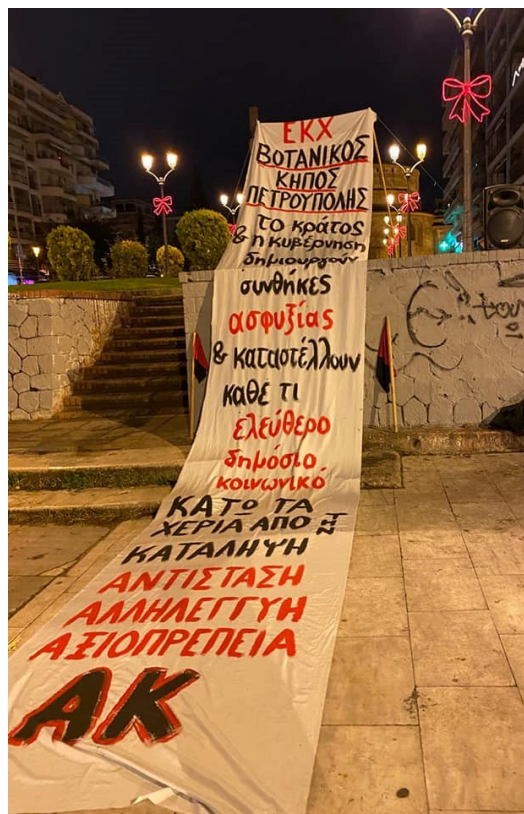 ΕΚΧ
ΒΟΤΑΝΙΚΟΣ
ΚΗΠΟΣ
ΠΕΤΡΟΥΠΟΛΗΣ
το κράτος
& η κυβέρνηση
δημιουργούν
συνθήκες
ασφυξίας
& καταστέλλουν
καθέ τι
ελεύθερο
δημόσιο
κοινωνικό
ΚΑΤΩ ΤΑ
ΧΕΡΙΑ ΑΠΟ ΤΗΝ
ΚΑΤΑΛΗΨΗ
ΑΝΤΙΣΤΑΣΗ
ΑΛΛΗΛΕΓΓΥΗ
ΑΞΙΟΠΡΕΠΕΙΑ
ΑΚ